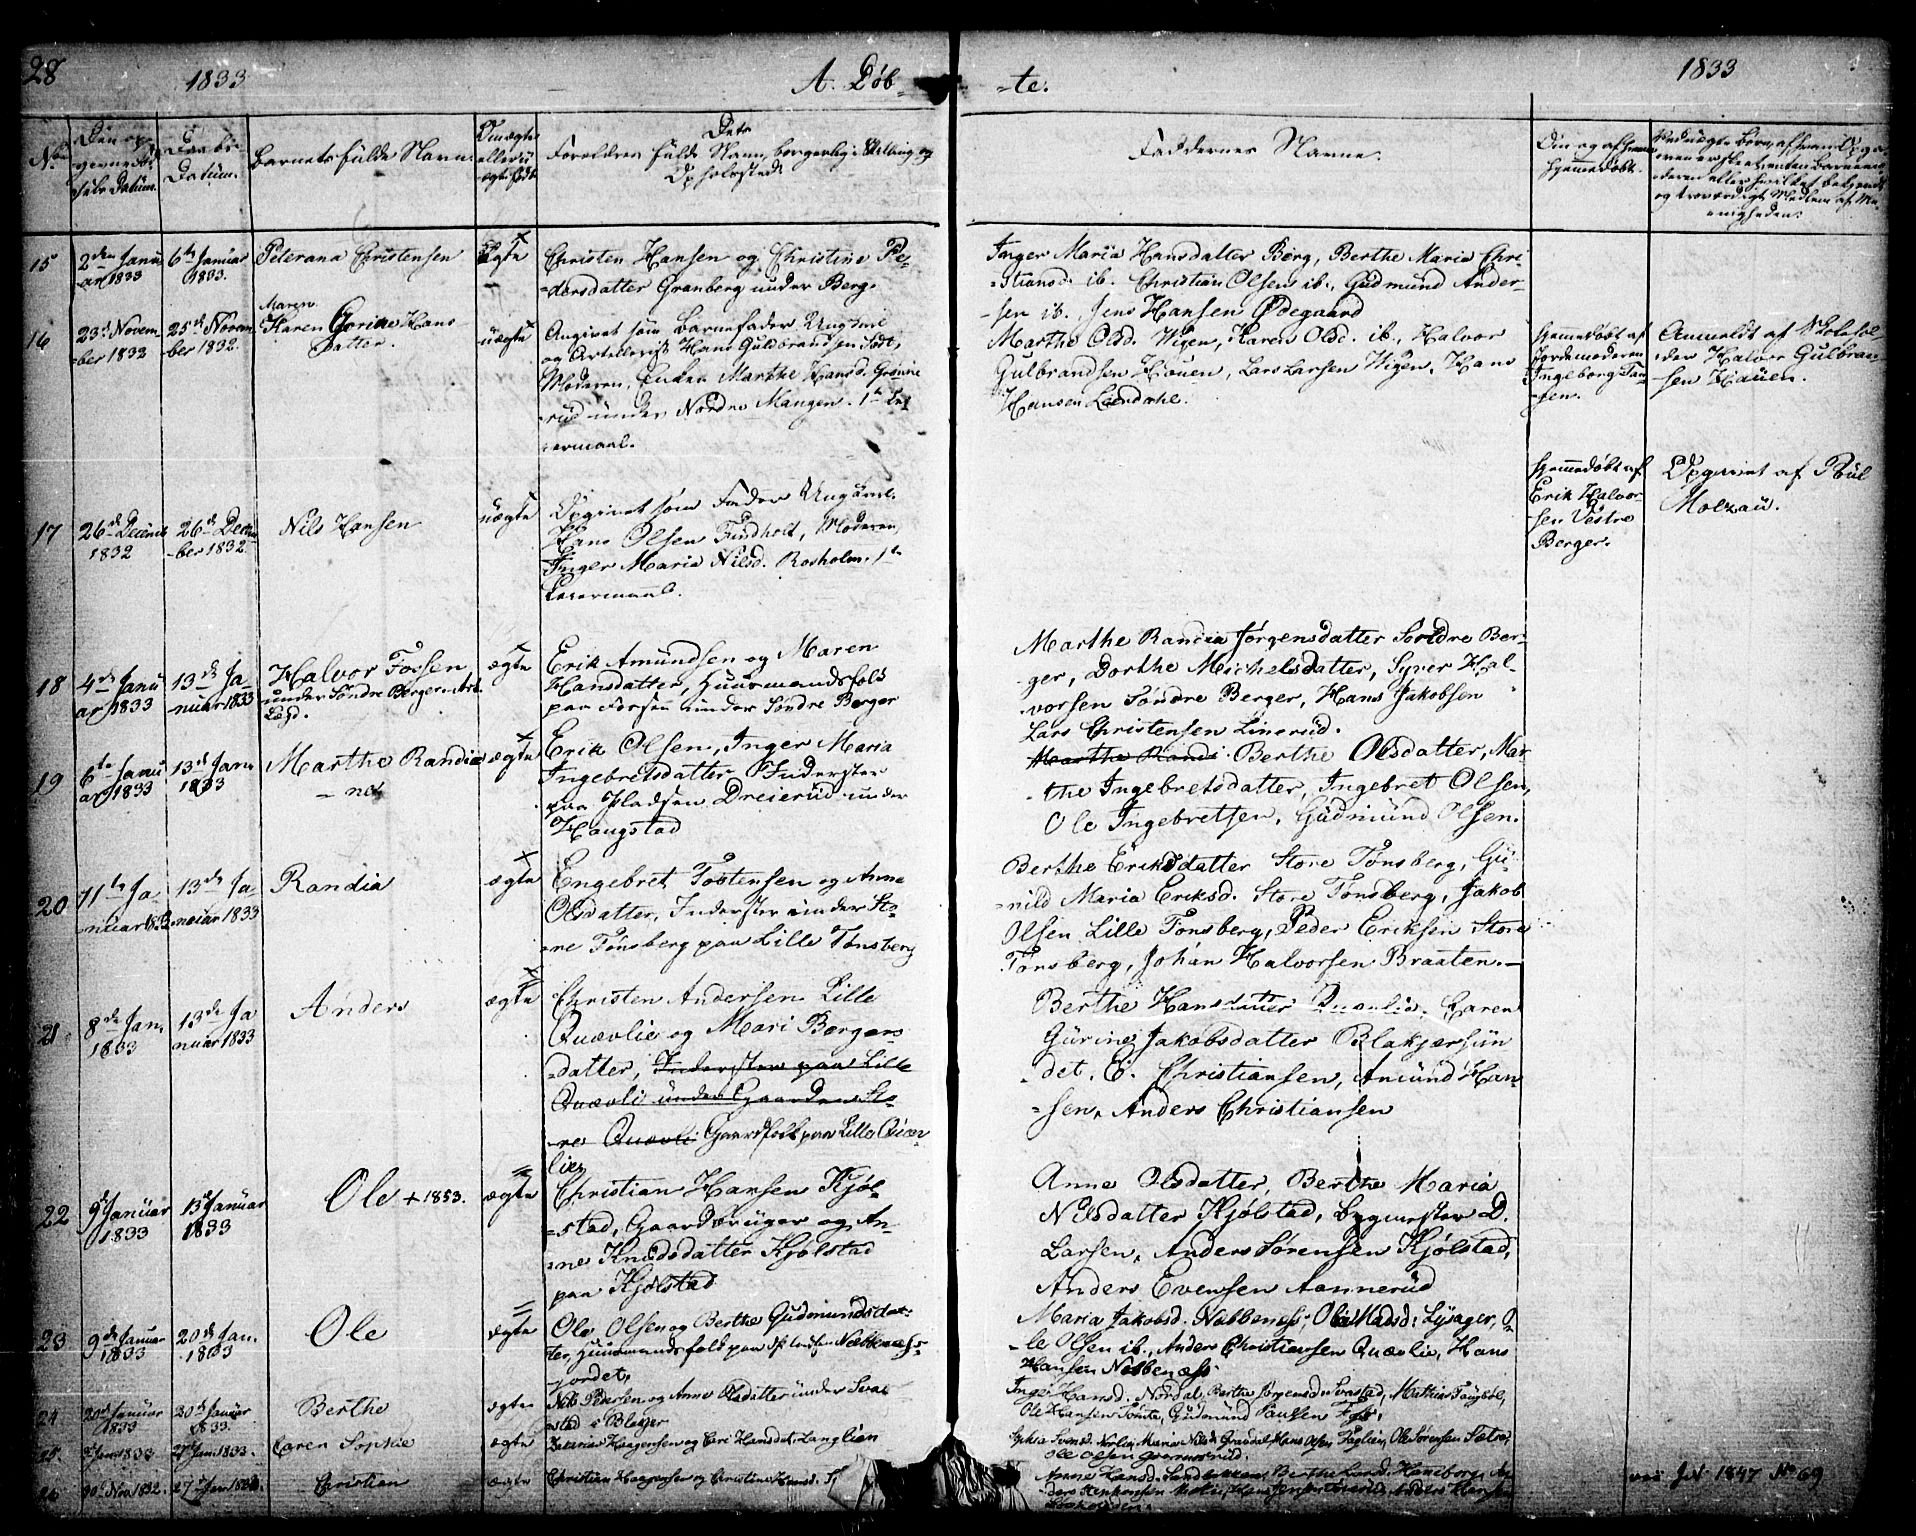 28
1833
A. Døb-
-te.
1833
No
Den op-
givne Fød-
sels Datum.
Daabs-
Datum.
Barnets fulde Navn.
Om ægte
eller u-
ægte født
Dets
Forældres fulde Navn, borgerlig Stilling og
Opholdssted.
Faddernes Navne.
Om og af hvem
hjemmedøbt.
15
2den Janu
ar 1833
6te Januar
1833.
Peterana Christensen
ægte
Christen Hansen og Christine Pe-
-dersdatter Granberg under Berg.
Inger Maria Hansdatter Berg, Berthe Maria Chri-
-stiansd. ib. Christian Olsen ib., Gudmund Ander-
-sen ib., Jens Hansen Ødegaard
16
23d Novem-
ber 1832
25d Novem
ber 1832.
Maren
Karen Gorine Hans-
datter.
uægte
Angivet som Barnefader Ungkarl
og Artillerist Hans Guldbrandsen
Moderen, Enken Marthe Hansd. Grønne
rud under Nordre Mangen. 1te Lej
-ermaal.
Marthe Olsd. Wigen, Karen Olsd. ib., Halvor
Gulbrandsen Hauen, Lars Larsen Wigen, Hans
Hansen Liendahl.
Hjemmedøbt af
Jordemoderen
Ingeborg Han-
sen.
Anmeldt af Skolehol-
der Halvor Gulbran-
sen Hauen.
17
26d Decemb
1832
26d Decem
-ber 1832.
Nils Hansen
uægte
Opgivet som Fader Ungkarl
Hans Olsen Fundholt, Moderen,
Inger Maria Nilsd. Rosholm. 1te
Leiermaal.
Hjemmedøbt af
Erik Halvor-
sen Vestre
Berger.
Opgivet af Poul
Molzau.
18
4de Janu
ar 1833
13de Ja-
nuar 1833
Halvor Fossen
under Søndre Berger
ægte
Erik Amundsen og Maren
Hansdatter, Huusmandsfolk
paa Forsen under Søndre Berger
Marthe Randia Jørgensdatter Søndre Ber-
ger, Dorthe Michelsdatter, Syver Hal-
vorsen Søndre Berger, Hans Jakobsen
Lars Christensen Linerud.
19
6te Janu
ar 1833
13de Jan.
1833
Marthe Randia
ægte
Erik Olsen, Inger Maria
Ingebretsdatter Inderster
paa Pladsen Dreierud under
Haugstad
Marthe Randi Berthe Olsdatter, Mar
the Ingebretsdatter, Ingebret Olsen,
Ole Ingebretsen, Gudmund Olsen.
20
11te Ja-
nuar 1833.
13de Ja
nuar 1833
Randia
ægte
Engebret Tostensen og Anne
Olsdatter, Inderster under Sto-
-re Tønsberg paa Lille Tønsberg
Berthe Eriksdatter Store Tønsberg, Gu-
-nild Maria Eriksd. Store Tønsberg, Jakob
Olsen Lille Tønsberg, Peder Eriksen Store
Tønsberg, Johan Halvorsen Braaten.
21
8de Jan.
1833
13de Ja
nuar 1833
Anders
ægte
Christen Andersen Lille
Quævlie og Mari Borgers
-datter, Inderster paa Lille
Quævli under Gaarden Sto-
-re Quævli Gaardfolk paa Lille Quæv-
lie
Berthe Hansdatter Quævlie, Karen
Gurine Jakobsdatter Blakjersun
-det, E. Christiansen, Amund Han
-sen, Anders Christiansen
22
9de Januar
1833
13de Januar
1833
Ole + 1853.
ægte
Christian Hansen Kjøl-
-stad, Gaardbruger og An-
-ne Knudsdatter Kjølstad
paa Kjølstad
Anne Olsdatter, Berthe Maria
Nilsdatter Kjølstad, Bygmester D.
Larsen, Anders Sørensen Kjølstad,
Anders Evensen Aannerud
23
9de Januar
1833
20de Jan.
1833
Ole
ægte
Ole Olsen og Berthe Gudmundsdat-
ter, Huusmandsfolk paa Pladsen Nebbenæss-
jordet,
Maria Jakobsd. Nebbenæss, Olia Madsd. Lysager, O-
-le Olsen ib., Anders Christiansen Quævlie, Hans
Hansen Nebbenæss
24
20de Januar
1833
20de Januar
1833.
Berthe
ægte
Nels Pedersen og Anne Olsdatter under Svar
-stad i Blager
Inge Hansd. Nordal, Berthe Jørgensd. Svastad, Mathias
Ole Hansen Tomte, Gudmund
25.
Jan 1833
27 Jan 1833.
Caren Sophie
ægte
Zakarias Haagensen og Eri Hansdat. Langlien
Sophia
Ole Olsen
26
30 Nov 1832.
27 Jan 1833
Christian
ægte
Christian Haagensen og Christine Hansd.
Anne Hansd.
1847 No 69